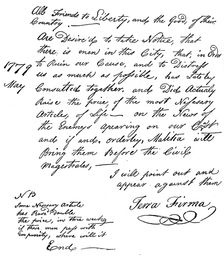 All Friends to Liberty, and the Good, of their
Country —
Are Desired to take Notice, that
there is men in this City, that, in Order
to Ruin our Cause, and to Distress
us as much as possible, has Lately
Consulted together, and Did Actualy
Raise the price, of the most Nessesary
Articles, of Life — on the News
of the Enemys apearing on our Cost
and if and, orderly, Malitia will
Bring them Before the Civil
Magestrates, —
I will point out and
appear against them
Terra Firma
1779
May,
N P
Some Nessesary Articles
has Rais'd Double
the price, in three weeks
if these men pass with
impunity, where will it
End —